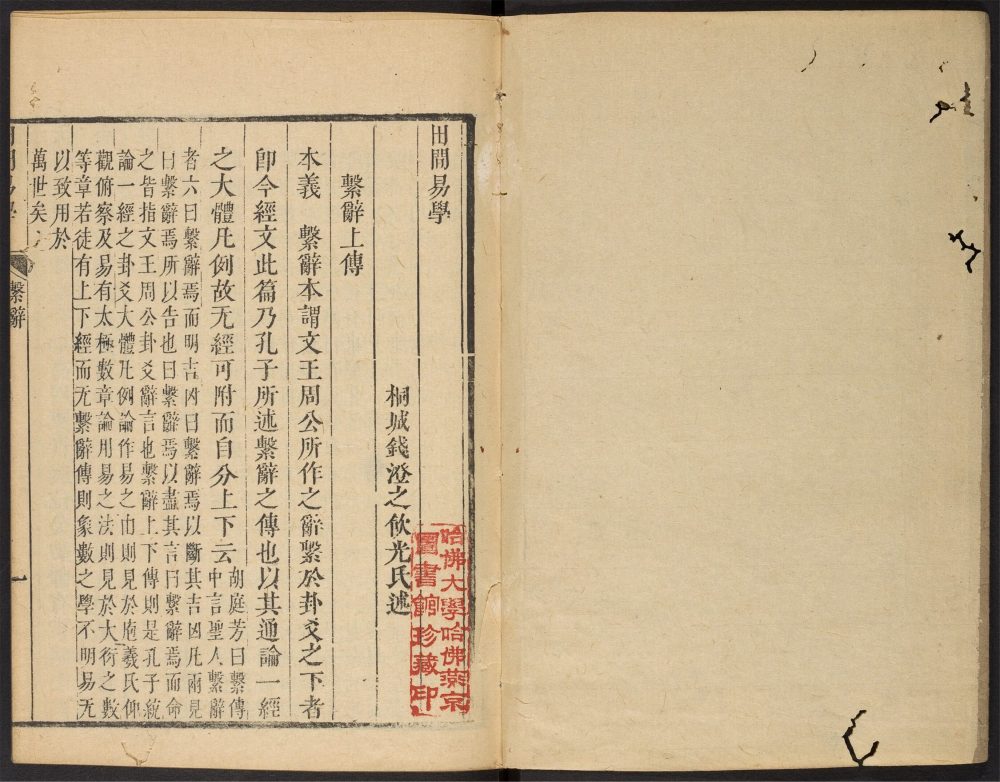 田間易學
桐城錢澄之飲光氏述
繫辭上傳
本義　繫辭本謂文王周公所作之辭繫於卦爻之下者
即今經文此篇乃孔子所述繫辭之傳也以其通論一經
之大體凡例故无經可附而自分上下云
胡庭芳曰繫傳
中言聖人繫辭
者六曰繫辭焉而明吉凶曰繫辭焉以斷其吉凶凡兩見
曰繫辭焉所以告也曰繫辭焉以盡其言曰繫辭焉而命
之皆指文王周公卦爻辭言也繫辭上下傳則是孔子統
論一經之卦爻大體凡例論作易之由則見於庖羲氏仰
觀俯察及易有太極數章論用易之法則見於大衍之數
等章若徒有上下經而无繫辭傳則象數之學不明易无
以致用於
萬世矣
繫辭
一
哈佛大學哈佛燕京
圖書館珍藏印